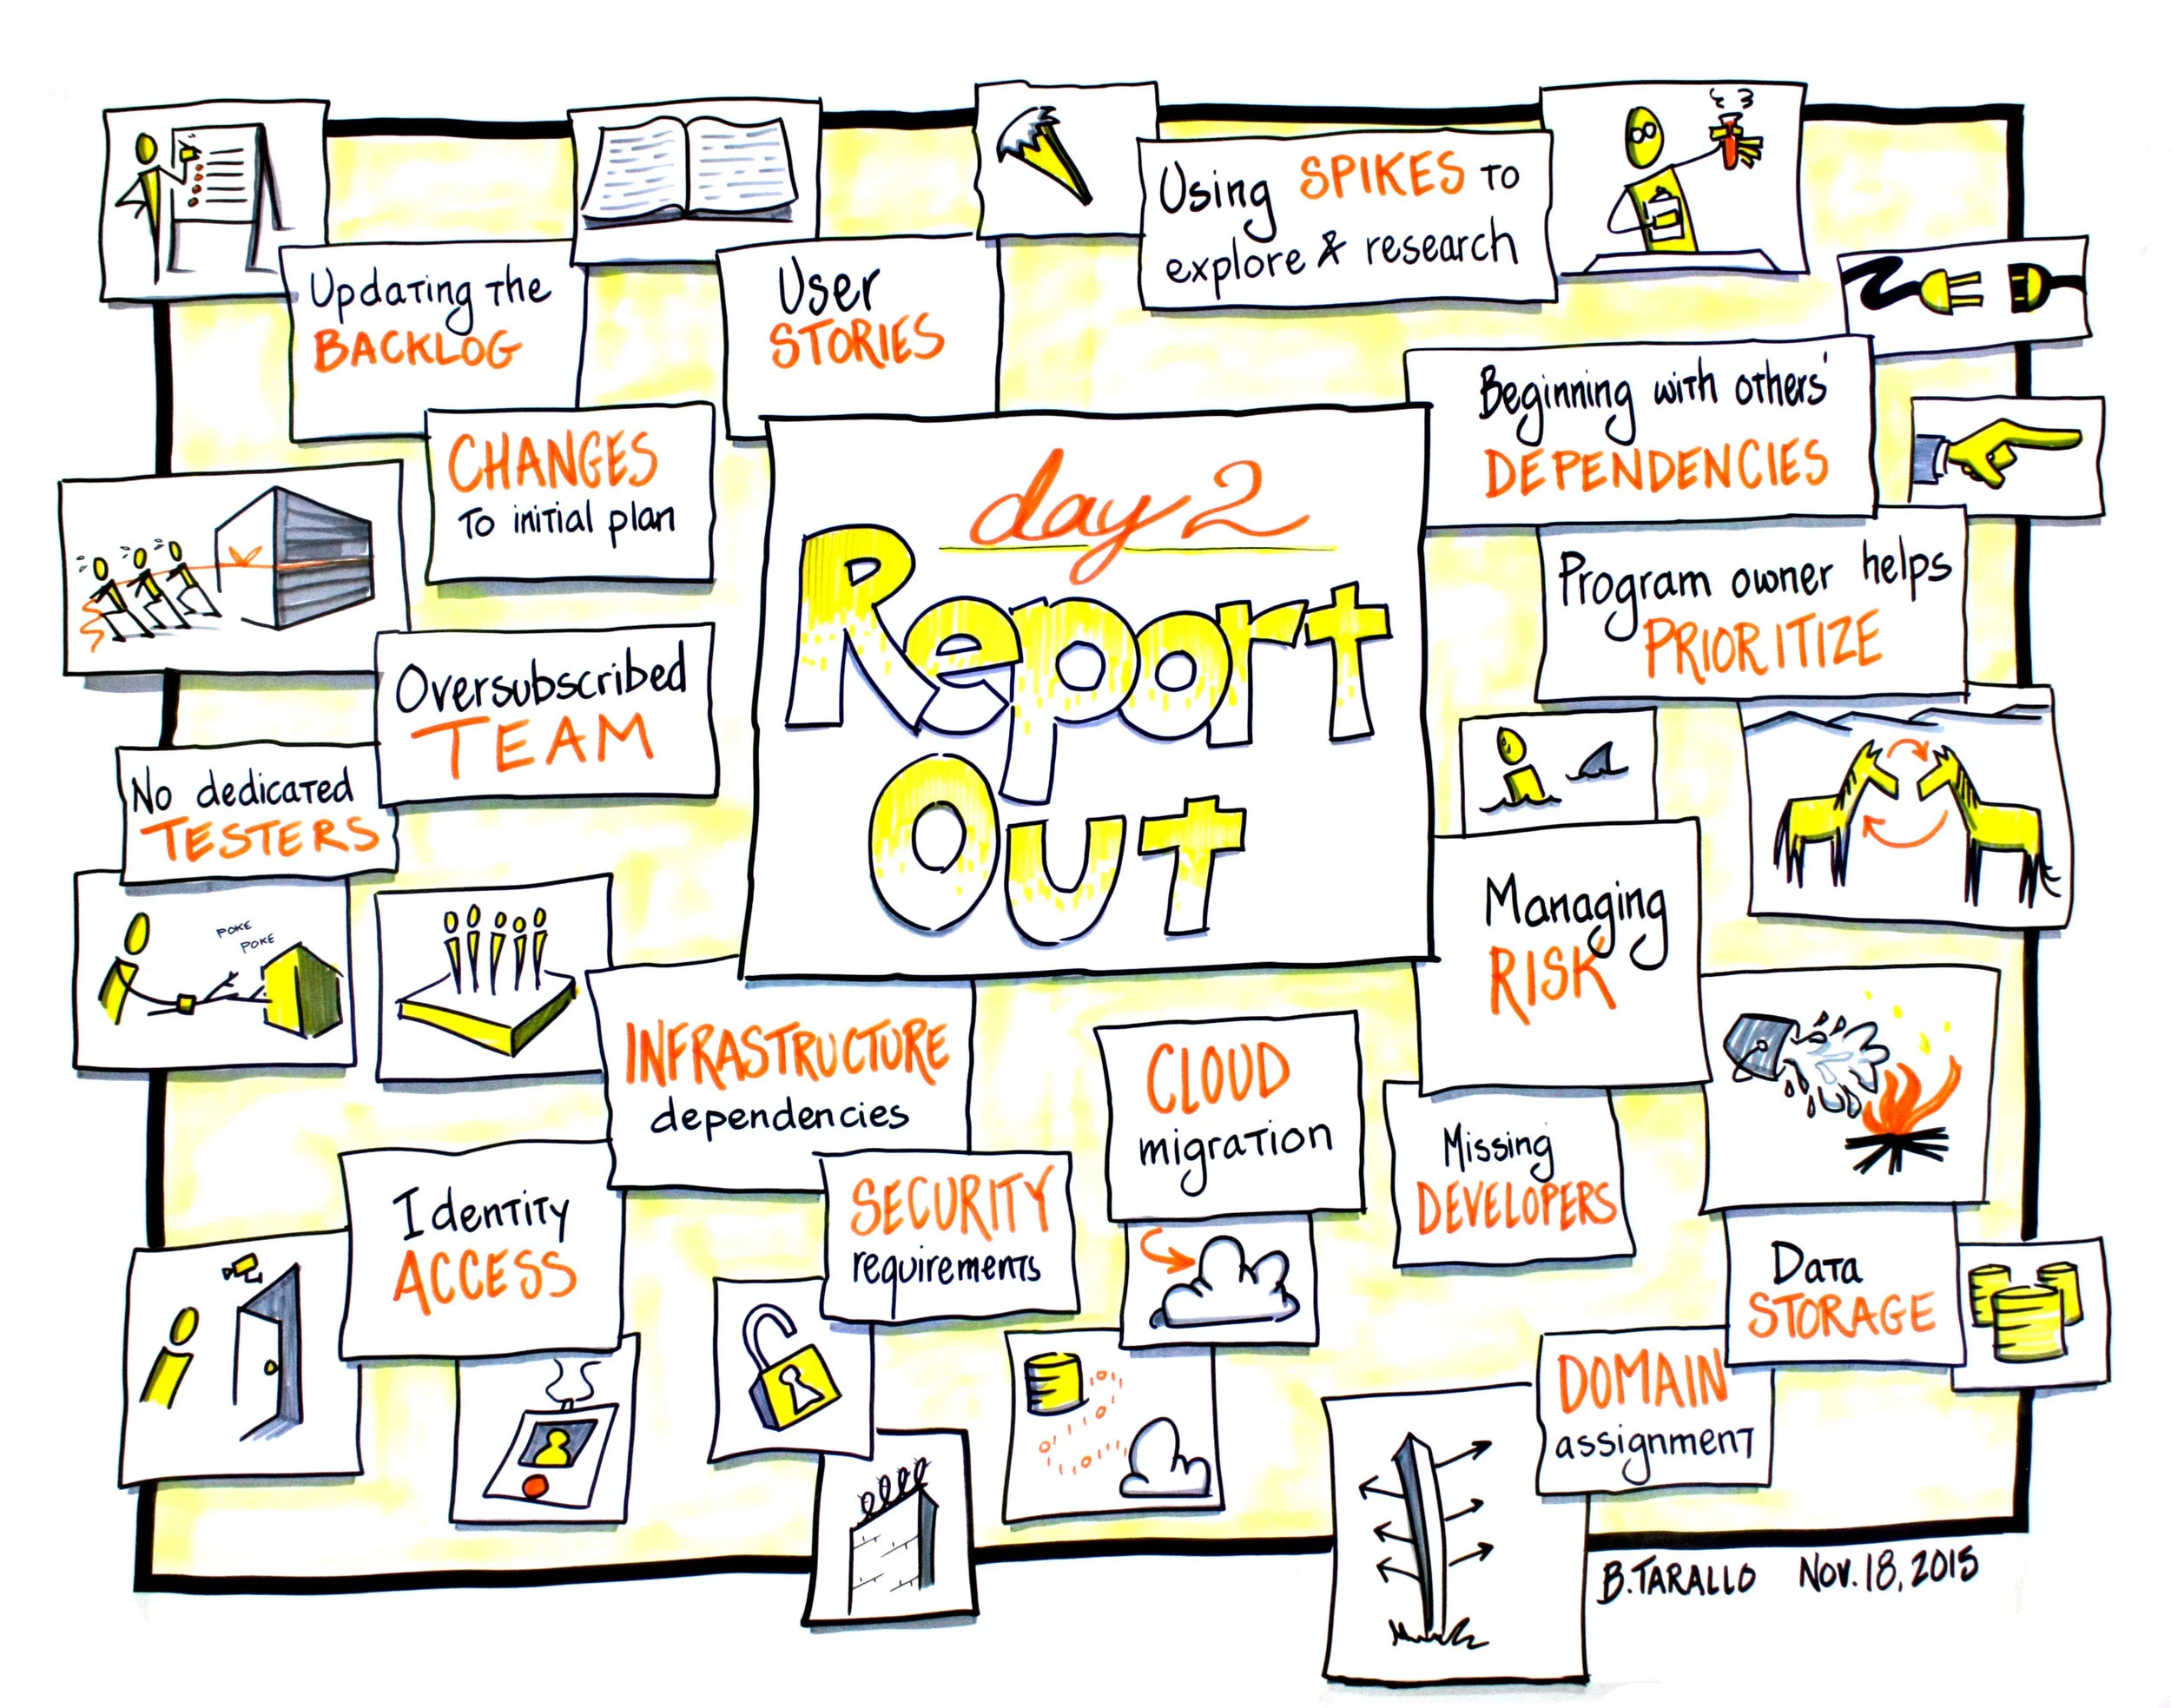 Updating the
BACKLOG
User
STORIES
Using SPIKES to
explore & research
Beginning with others'
DEPENDENCIES
CHANGES
to initial plan
day 2
Report
Out
Program owner helps
PRIORITIZE
Oversubscribed
TEAM
No dedicated
TESTERS
POKE
POKE
Managing
RISK
INFRASTRUCTURE
dependencies
CLOUD
migration
Missing
DEVELOPERS
Identity
ACCESS
SECURITY
requirements
Data
STORAGE
DOMAIN
assignment
B. TARALLO Nov. 18, 2015